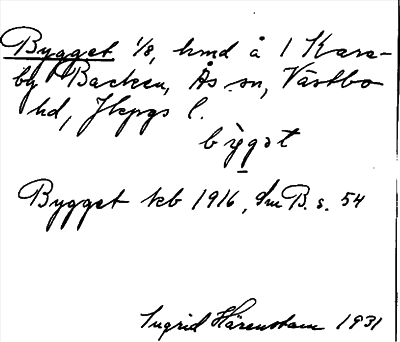 Bygget 1/8, hmd å 1 Kara-
by Backen, Ås sn, Västbo
hd, Jkpgs l.
bỳgət
Bygget kb 1916, dm B. s. 54
Ingrid Härenstam 1931